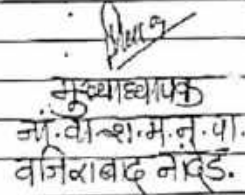 मुख्याध्यापक
नां.वा.श.म.न.पा.
वजिराबाद नांदेड.